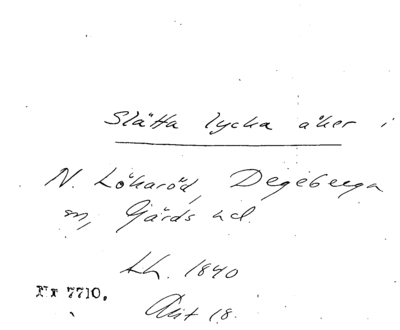 Slätta lycka åker i
N. Lökaröd, Degeberga
sn, Gärds hd.
Lh. 1840
Nr 7710.
Akt 18.